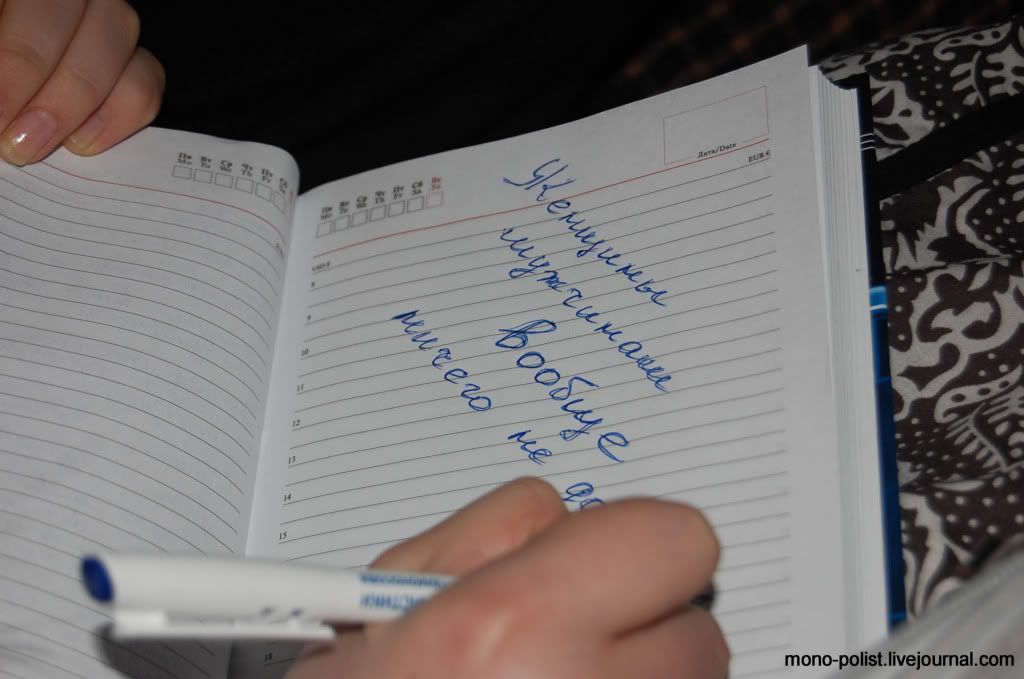 Пн Вт Ср Чт Пт Сб
Mo Tu We Th Fr Sa
Пн Вт Ср Чт Пт Сб Вс
Mo Tu We Th Fr Sa Su
Дата/Date
USD $
EUR €
8
9
10
11
12
13
14
15
18
Женщины
мужчинам
вообще
ничего не до
mono-polist.livejournal.com